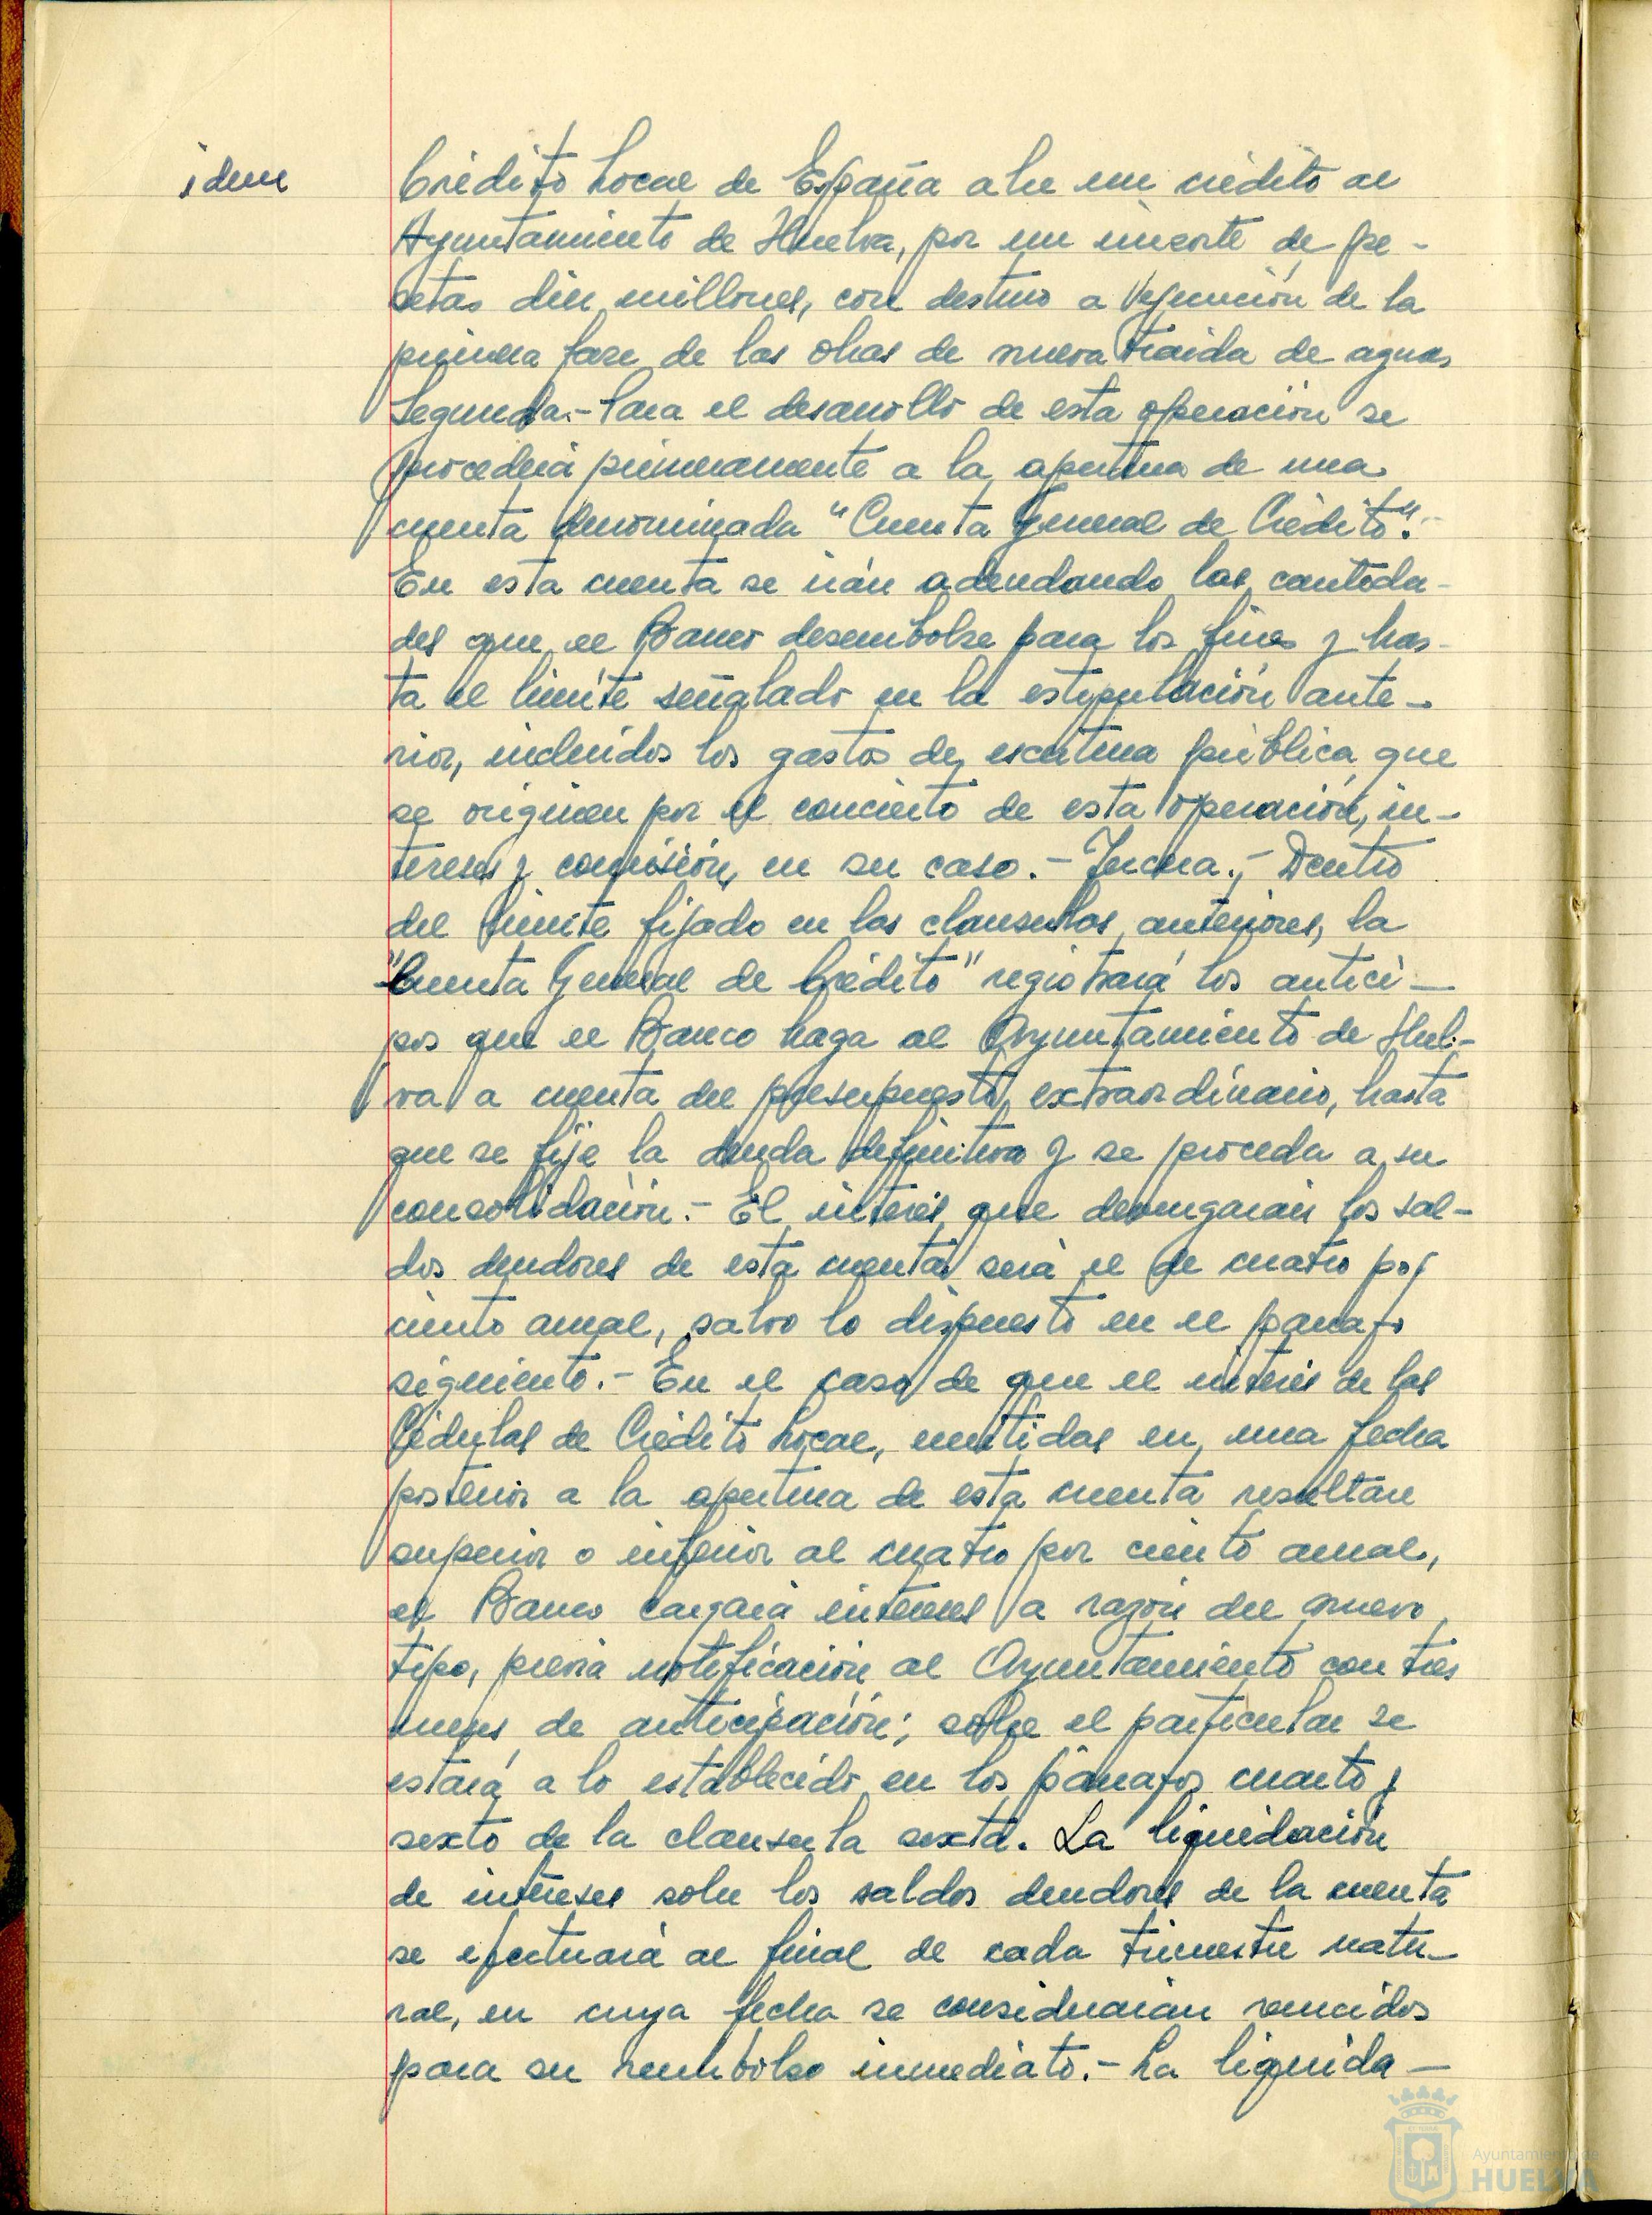 idem
Crédito Local de España abre un crédito al
Ayuntamiento de Huelva, por un importe de pe-
setas diez millones, con destino a ejecución de la
primera fase de las obras de nueva traída de aguas
Segunda.- Para el desarrollo de esta operación se
procederá primeramente a la apertura de una
cuenta denominada "Cuenta General de Crédito".-
En esta cuenta se irán adeudando las cantida-
des que el Banco desembolse para los fines y has-
ta el límite señalado en la estipulación ante-
rior, incluidos los gastos de escritura pública que
se originen por el concierto de esta operación, in-
tereses y comisión, en su caso.- Tercera.- Dentro
del límite fijado en las clausulas anteriores, la
"Cuenta General de Crédito" registrará los antici-
pos que el Banco haga al Ayuntamiento de Huel-
va a cuenta del presupuesto extraordinario, hasta
que se fije la deuda definitiva y se proceda a su
consolidación.- El interés que devengarán los sal-
dos deudores de esta cuenta será el de cuatro por
ciento anual, salvo lo dispuesto en el parrafo
siguiente.- En el caso de que el interés de las
Cédulas de Crédito Local, emitidas en una fecha
posterior a la apertura de esta cuenta resultare
superior o inferior al cuatro por ciento anual,
el Banco cargará intereses a razón del nuevo
tipo, previa notificación al Ayuntamiento con tres
meses de anticipación; sobre el particular se
estará a lo establecido en los párrafos cuarto y
sexto de la clausula sexta. La liquidación
de intereses sobre los saldos deudores de la cuenta
se efectuará al final de cada trimestre natu-
ral, en cuya fecha se considerarán vencidos
para su reembolso inmediato.- La liquida-
Ayuntamiento de
HUELVA